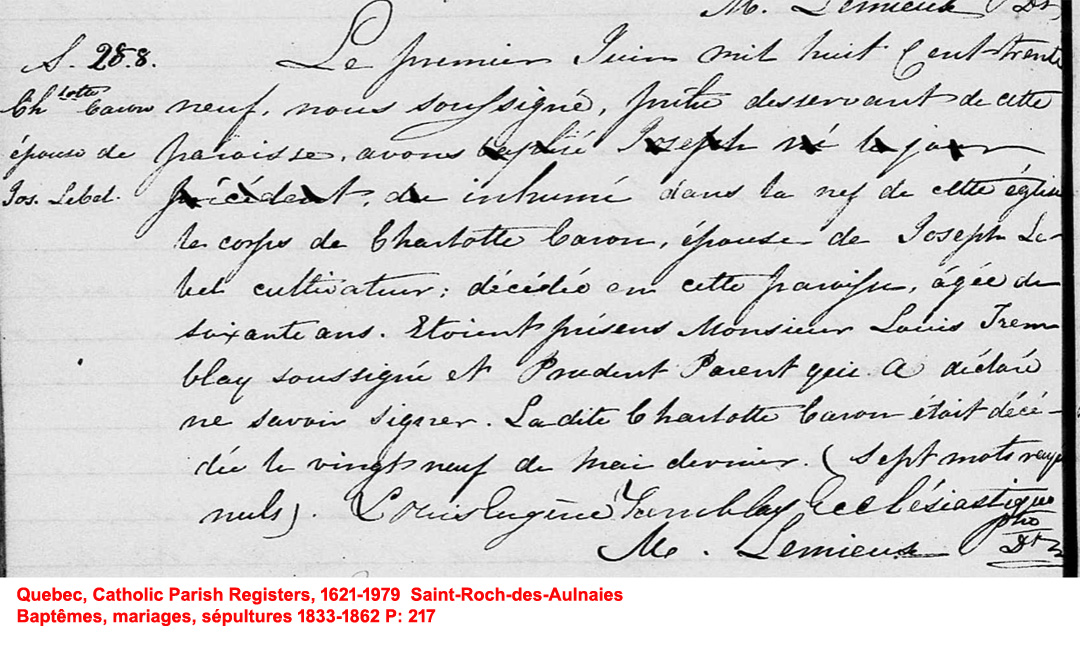 M. Lemieux Dt,
S. 288.
Ch lotte Caron
épouse de
Jos. Lebel.
Le premier Juin mil huit cent trente
neuf, nous soussigné, prêtre desservant de cette
paroisse, avons baptisé Joseph né le jour
précédent, de inhumé dans la nef de cette église
le corps de Charlotte Caron, épouse de Joseph Le-
bel cultivateur; décédée en cette paroisse, âgée de
soixante ans. Etoient présens Monsieur Louis Trem
blay soussigné et Prudent Parent qui a déclaré
ne savoir signer. La dite Charlotte Caron était décé-
dée le vingt neuf de mai dernier. (Sept mots rayés
nuls). Louis Eugène Tremblay Ecclésiastique
M. Lemieux ptre Dt
Quebec, Catholic Parish Registers, 1621-1979 Saint-Roch-des-Aulnaies
Baptêmes, mariages, sépultures 1833-1862 P: 217